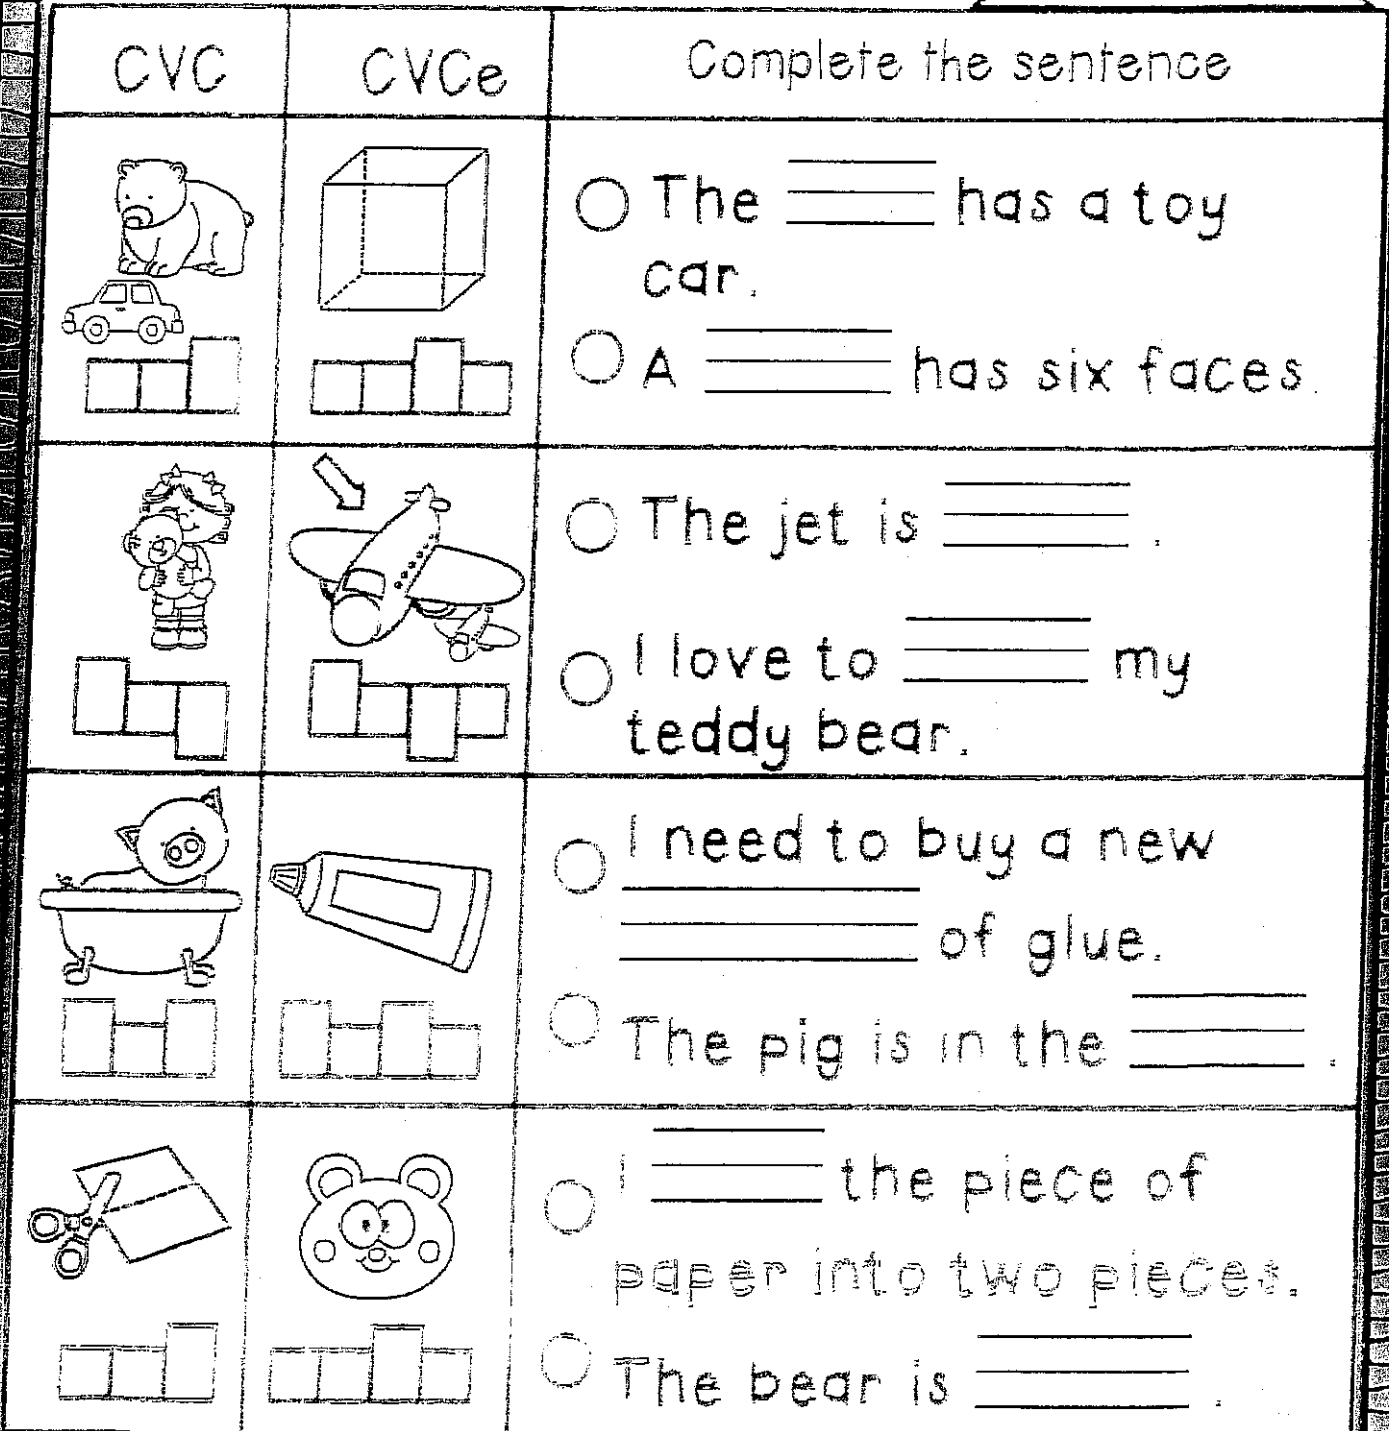 CVC CVCe Complete the sentence
The has a toy
car.
A has six faces.
The jet is .
I love to my
teddy bear.
I need to buy a new
of glue.
The pig is in the .
I the piece of
paper into two pieces.
The bear is .